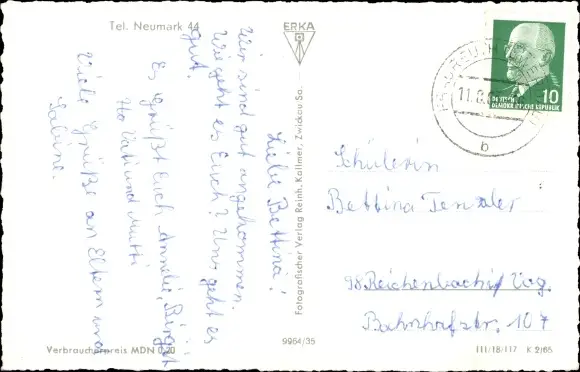 Tel. Neumark 44
ERKA
Liebe Bettina!
Wir sind gut angekommen.
Wie geht es Euch? Uns geht es
gut.
Es grüßt Euch Annelie, Birgit
Vati und Mutti
Viele Grüße an Eltern und
Sabine.
Fotografischer Verlag Reinh. Kallmer, Zwickau Sa.
9964/35
Verbraucherpreis MDN 0,20
DEUTSCHE
DEMOKRATISCHE REPUBLIK
10
11.8.
b
Schülerin
Bettina
98 Reichenbach/ Vog.
Bahnhofstr. 107
III/18/117 K 2/65